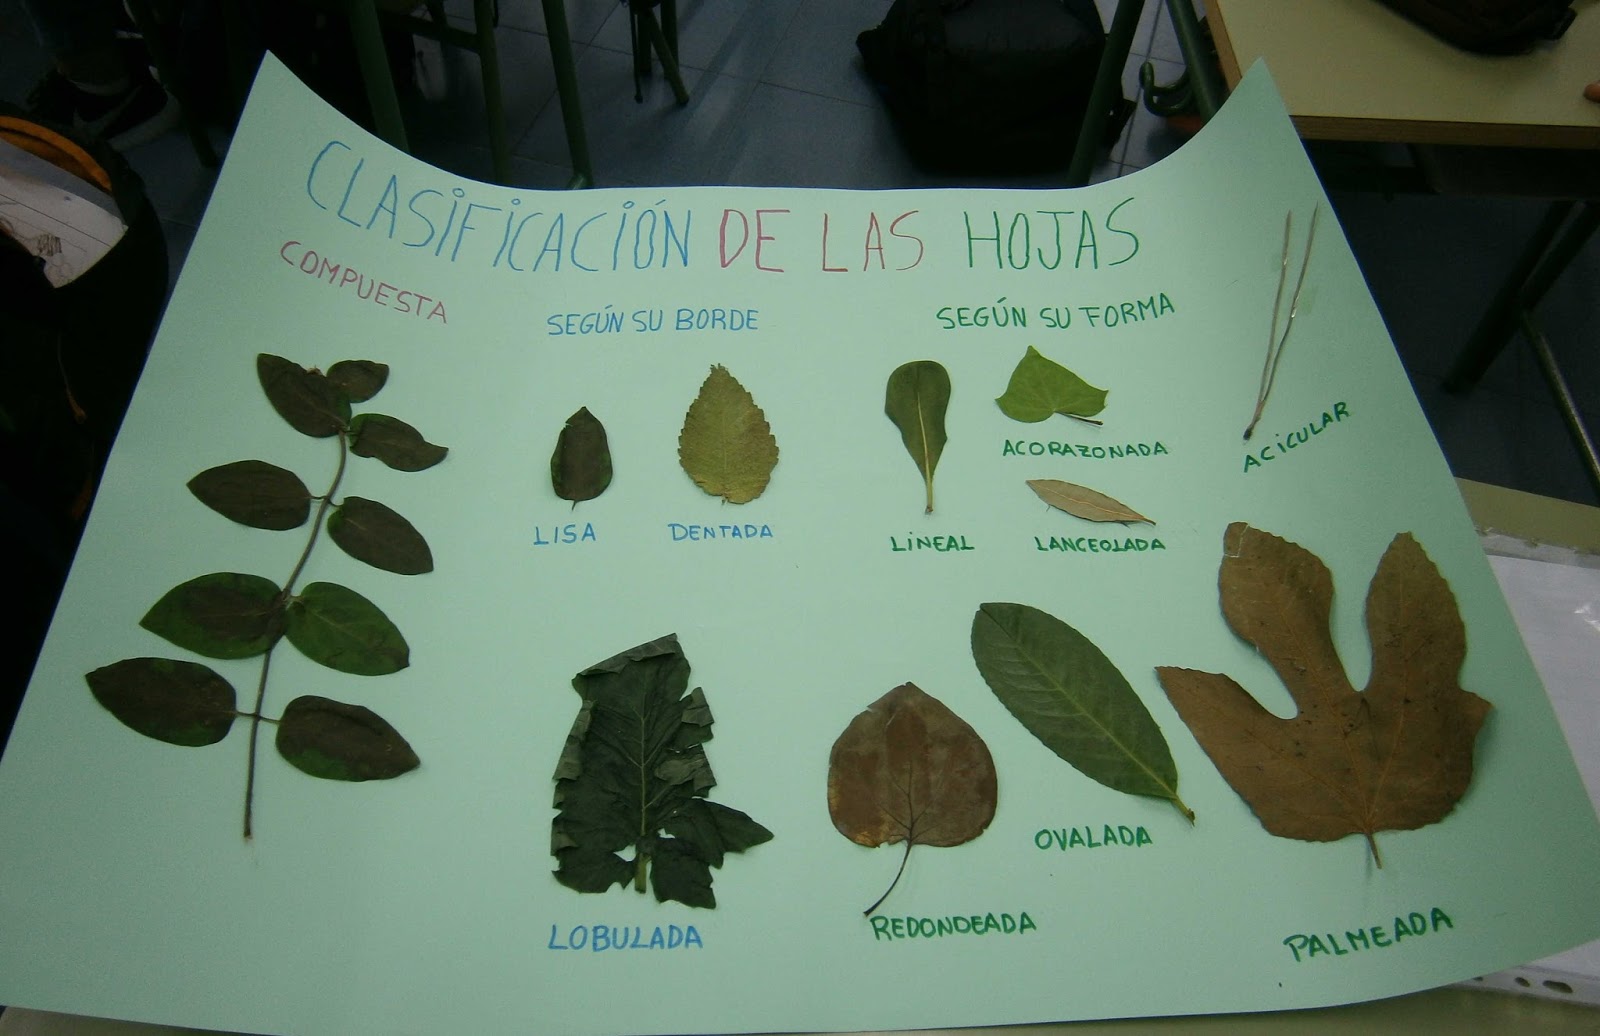 CLASIFICACIÓN DE LAS HOJAS
COMPUESTA
SEGÚN SU BORDE
SEGÚN SU FORMA
LISA
DENTADA
LOBULADA
LINEAL
ACORAZONADA
LANCEOLADA
ACICULAR
REDONDEADA
OVALADA
PALMEADA